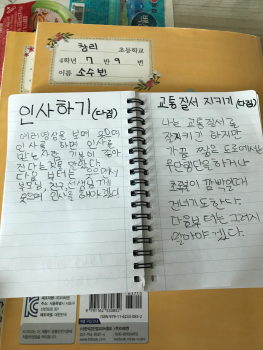 창리 초등학교
4학년 7반 9번
이름 소수빈
인사하기(다짐)
여러영상을 보며 웃으며
인사를 하면 인사를
받는사람 기분이 좋아
진다는것을 알았다.
다음 부터는 웃으면서
부모님, 친구, 선생님께
웃으며 인사를 해야겠다
교통질서 지키기(다짐)
나는 교통질서를
잘지키긴 하지만
가끔 짧은 도로에서는
무단횡단을 하거나
초록불이 깜빡일때
건너기도한다.
다음부터는 그러지
말아야겠다.